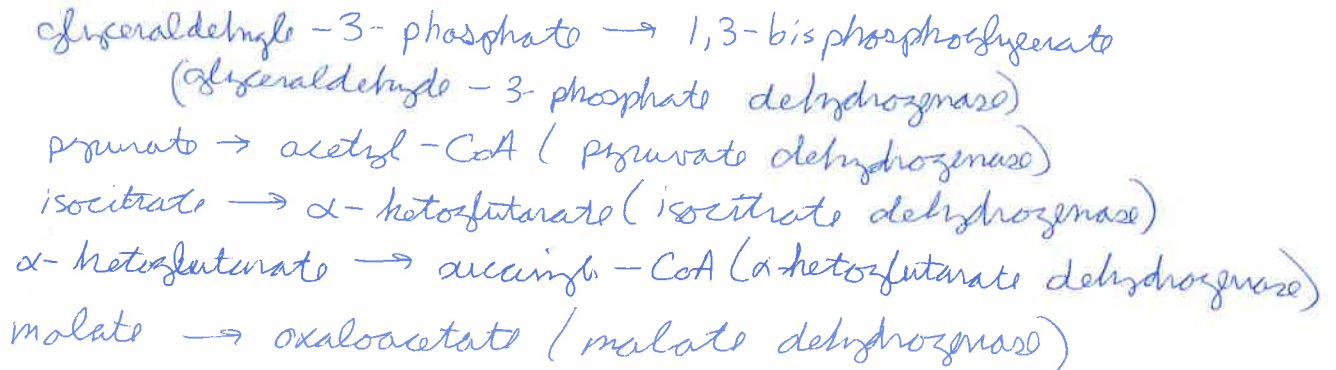 glyceraldehyde-3-phosphate → 1,3-bisphosphoglycerate
(glyceraldehyde-3-phosphate dehydrogenase)
pyruvate → acetyl-CoA (pyruvate dehydrogenase)
isocitrate → α-ketoglutarate (isocitrate dehydrogenase)
α-ketoglutarate → succinyl-CoA (α-ketoglutarate dehydrogenase)
malate → oxaloacetate (malate dehydrogenase)